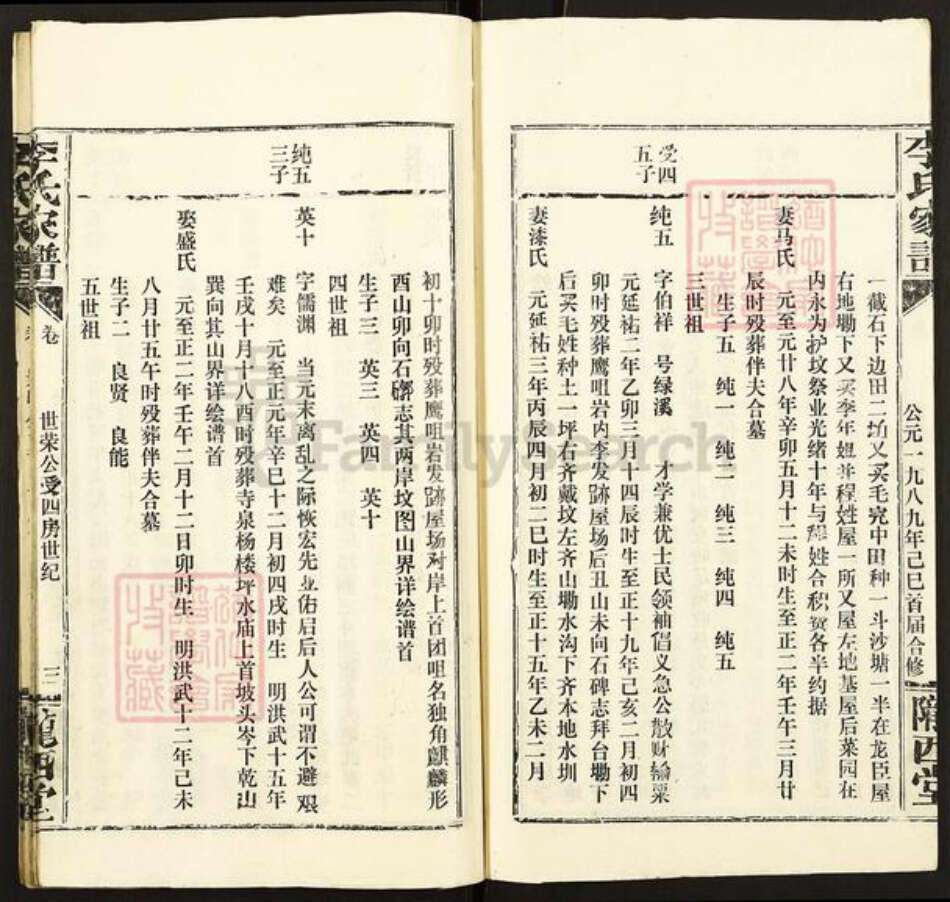 李氏家谱
公元一九八九年己巳首届合修
陇西堂
受四
五子
一截石下边田二坵又买毛完中田种一斗沙塘一半在龙臣屋
右地塝下又买李年妞并程姓屋一所又屋左地基屋后菜园在
内永为护坟祭业光绪十年与程姓合积赀各半约据
妻马氏 元至元廿八年辛卯五月十二未时生至正二年壬午三月廿
辰时殁葬伴夫合墓
生子五 纯一 纯二 纯三 纯四 纯五
三世祖
纯五 字伯祥 号绿溪 才学兼优士民领袖倡义急公散财输粟
元延祐二年乙卯三月十四辰时生至正十九年己亥二月初四
卯时殁葬鹰咀岩内李发跡屋场后丑山未向石碑志拜台塝下
后买毛姓种土一坪右齐戴坟左齐山塝水沟下齐本地水圳
妻漆氏 元延祐三年丙辰四月初二巳时生至正十五年乙未二月
纯五
三子
初十卯时殁葬鹰咀岩发跡屋场对岸上首团咀名独角麒麟形
酉山卯向石磜志其两岸坟图山界详绘谱首
生子三 英三 英四 英十
四世祖
英十 字儒渊 当元末离乱之际恢宏先业佑后后人公可谓不避艰
难矣 元至正元年辛巳十二月初四戌时生 明洪武十五年
壬戌十月十八酉时殁葬寺泉杨楼坪水庙上首坡头岑下乾山
巽向其山界详绘谱首
娶盛氏 元至正二年壬午二月十二日卯时生 明洪武十二年己未
八月廿五午时殁葬伴夫合墓
生子二 良贤 良能
五世祖
李氏家谱
卷
世荣公受四房世纪
三
陇西堂
FamilySearch